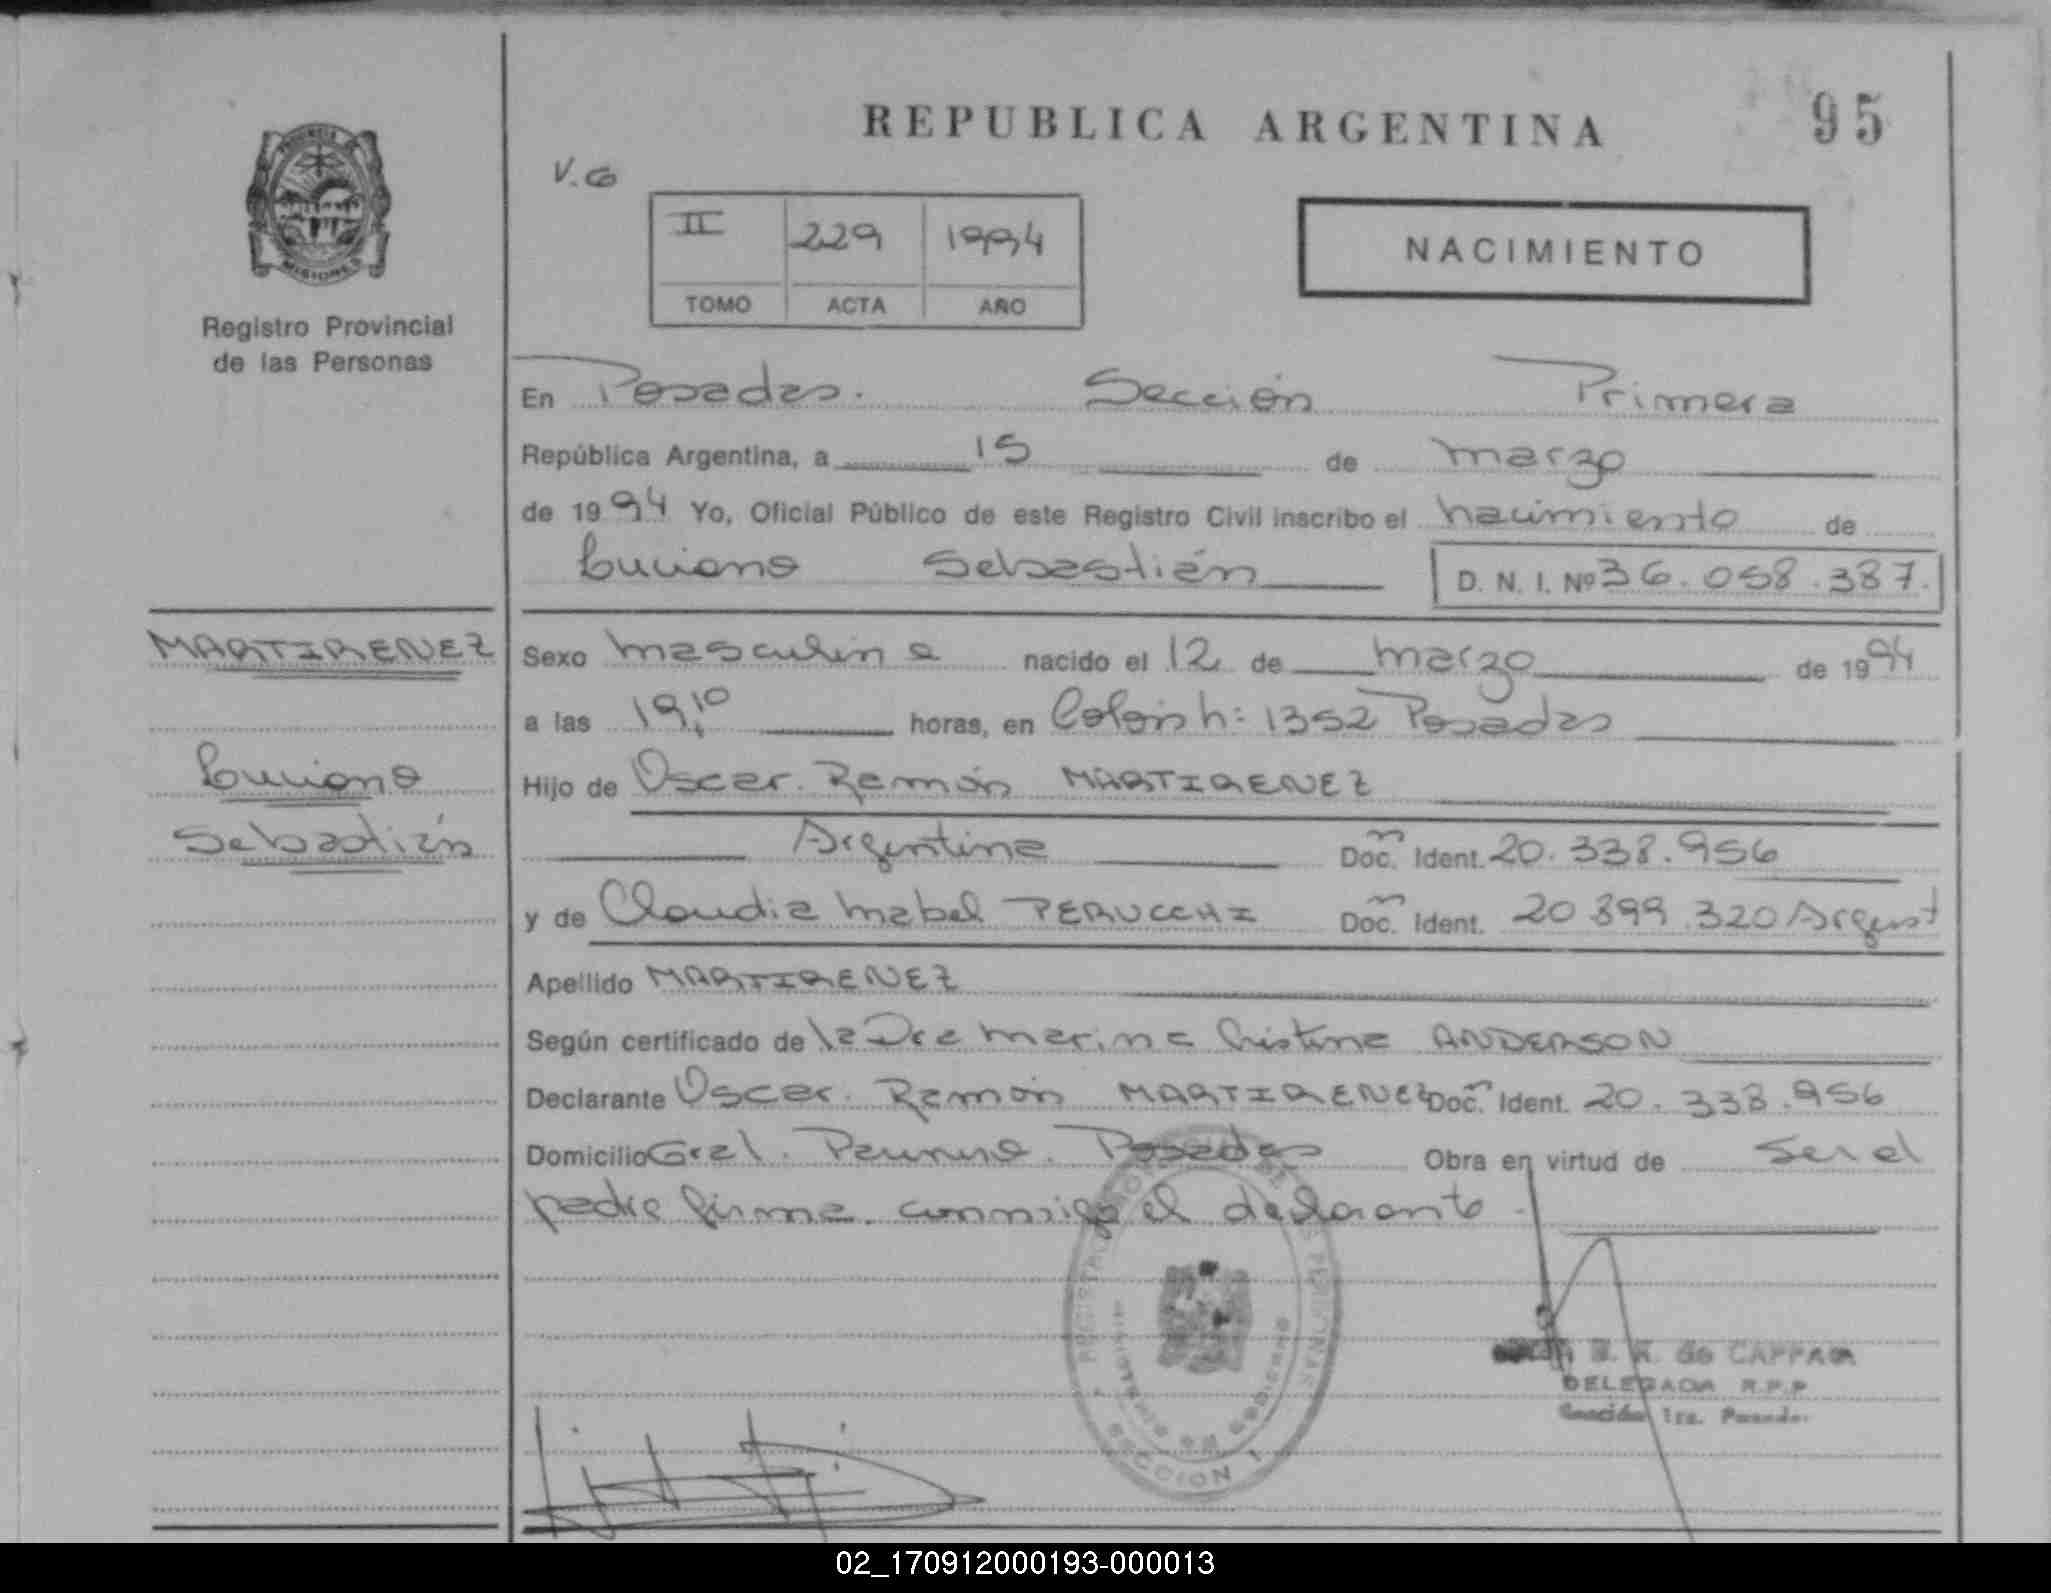 REPUBLICA ARGENTINA
95
V.G
II 229 1994
TOMO ACTA AÑO
NACIMIENTO
PROVINCIA DE
MISIONES
Registro Provincial
de las Personas
En Posadas. Sección Primera
República Argentina, a 15 de marzo
de 1994 Yo, Oficial Público de este Registro Civil inscribo el nacimiento de
Luciano Sebastián D. N. I. Nº 36.058.387.
MARTIRENEZ
Luciano
Sebastián
Sexo masculino nacido el 12 de marzo de 1994
a las 19,10 horas, en Colón h: 1352 Posadas
Hijo de Oscar. Ramón MARTIRENEZ
Argentina Doc. Ident. 20.338.956
y de Claudia Mabel PERUCCHI Doc. Ident. 20.899.320 Argent
Apellido MARTIRENEZ
Según certificado de la Dra Marina Cristina ANDERSON
Declarante Oscar. Ramón MARTIRENEZ Doc. Ident. 20.338.956
Domicilio Gral. Paunero. Posadas Obra en virtud de Ser el
padre firma conmigo el declarante.
de CAPPA
DELEGADA R.P.P
Sección 1ra. Posadas
SECCION 1
02_170912000193-000013